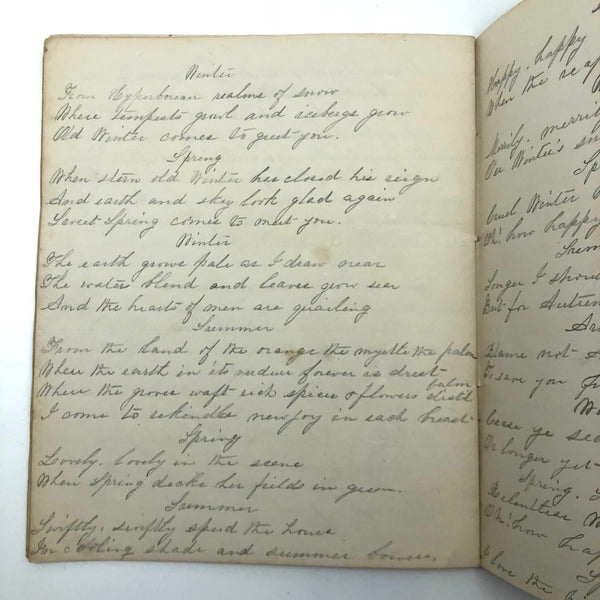 Winter
From Hyperborean realms of snow
Where tempests growl and icebergs grow
Old Winter comes to greet you.
Spring
When stern old Winter has closed his reign
And earth and sky look glad again
Sweet Spring comes to meet you.
Winter
The earth grows pale as I draw near
The waters blend and leaves grow sear
And the hearts of men are quailing
Summer
From the land of the orange the myrtle the palm
Where the earth in its verdure forever is drest
Where the groves waft rich spices & flowers distil balm
I come to rekindle new joy in each breast -
Spring
Lovely, lovely is the scene
When Spring decks her fields in green.
Summer
Swiftly, swiftly speed the hours
In cooling shade and summer bowers.
Happy, happy
When the
merrily
Winter's
Cruel Winter
Oh! how happy
Summer
Longer I should
But for Autumn
Blame not
To save you
Cease ye
Or longer yet
Spring,
Relentless
Oh! how
love the